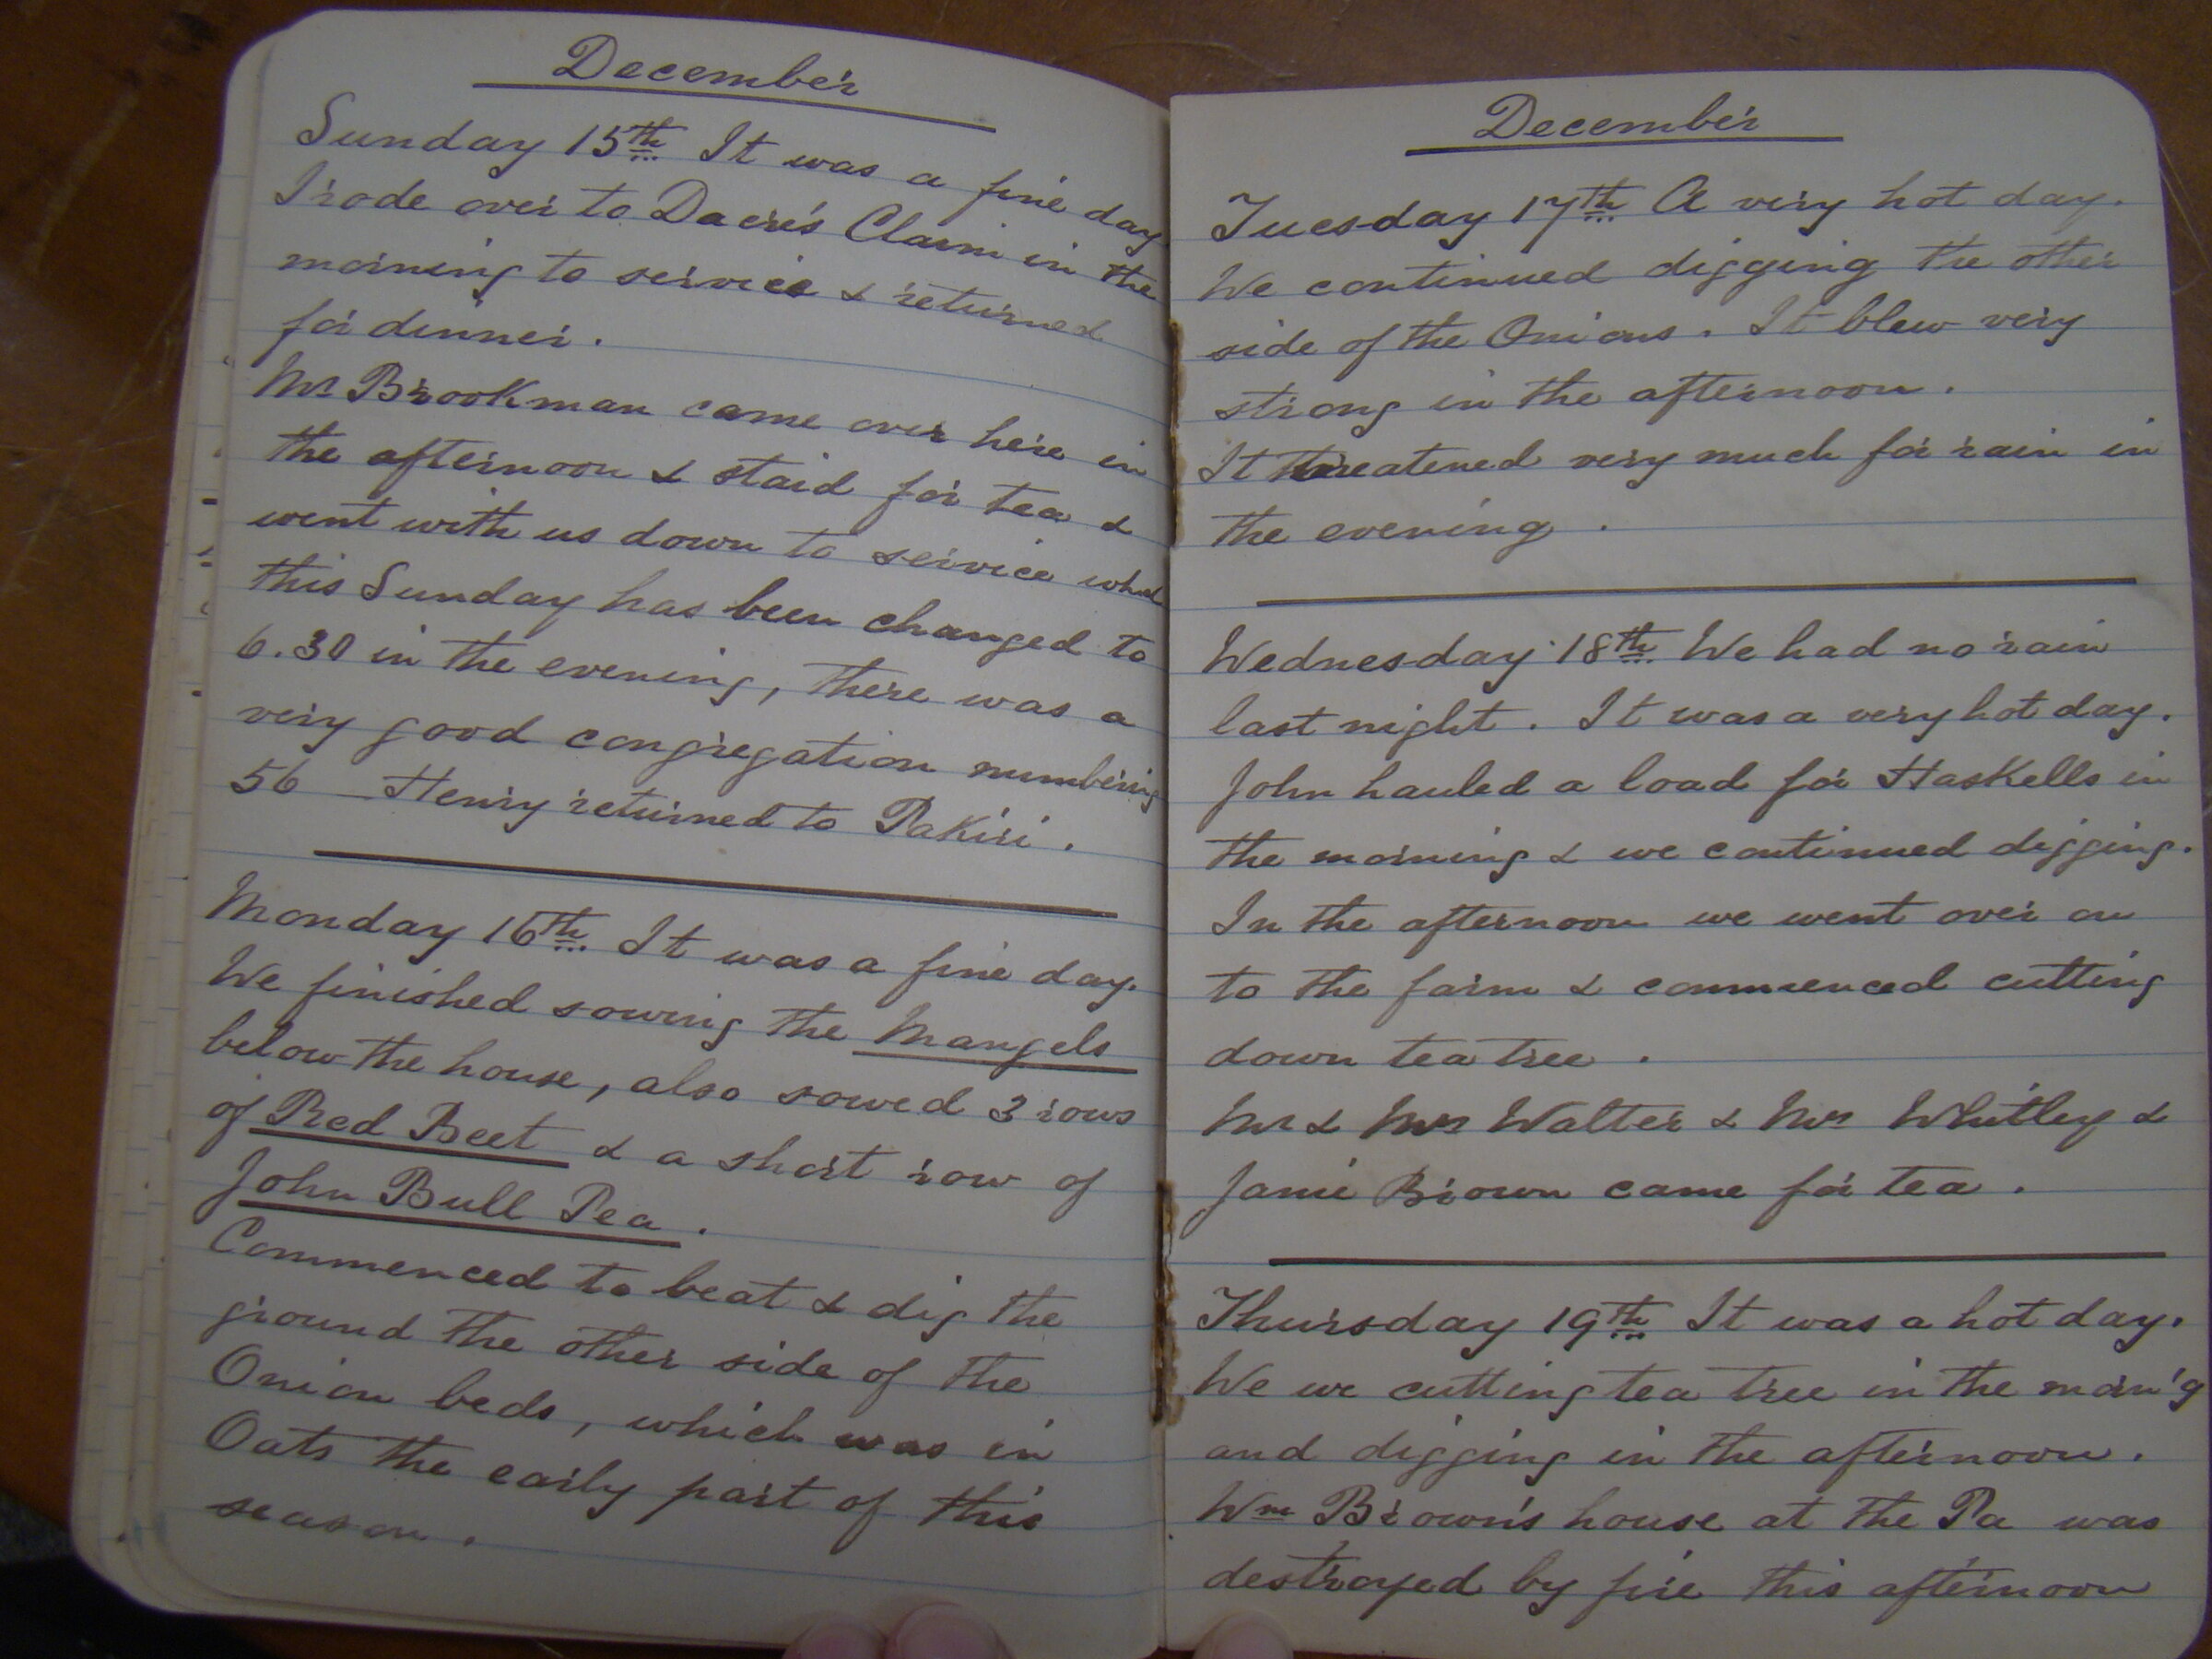 December
Sunday 15th It was a fine day
I rode over to Dacre's Claim in the
morning to service & returned
for dinner.
Mr Brookman came over here in
the afternoon & staid for tea &
went with us down to service which
this Sunday has been changed to
6.30 in the evening, there was a
very good congregation numbering
56 _ Henry returned to Pakiri.
Monday 16th It was a fine day.
We finished sowing the Mangels
below the house, also sowed 3 rows
of Red Beet & a short row of
John Bull Pea.
Commenced to beat & dig the
ground the other side of the
Onion beds, which was in
Oats the early part of this
season.
December
Tuesday 17th A very hot day.
We continued digging the other
side of the Onions. It blew very
strong in the afternoon.
It threatened very much for rain in
the evening.
Wednesday 18th We had no rain
last night. It was a very hot day.
John hauled a load for Haskells in
the morning & we continued digging.
In the afternoon we went over on
to the farm & commenced cutting
down tea tree.
Mr & Mrs Walter & Mrs Whitley &
Janie Brown came for tea.
Thursday 19th It was a hot day.
We we cutting tea tree in the morn'g
and digging in the afternoon.
Wm Brown's house at the Pa was
destroyed by fire this afternoon